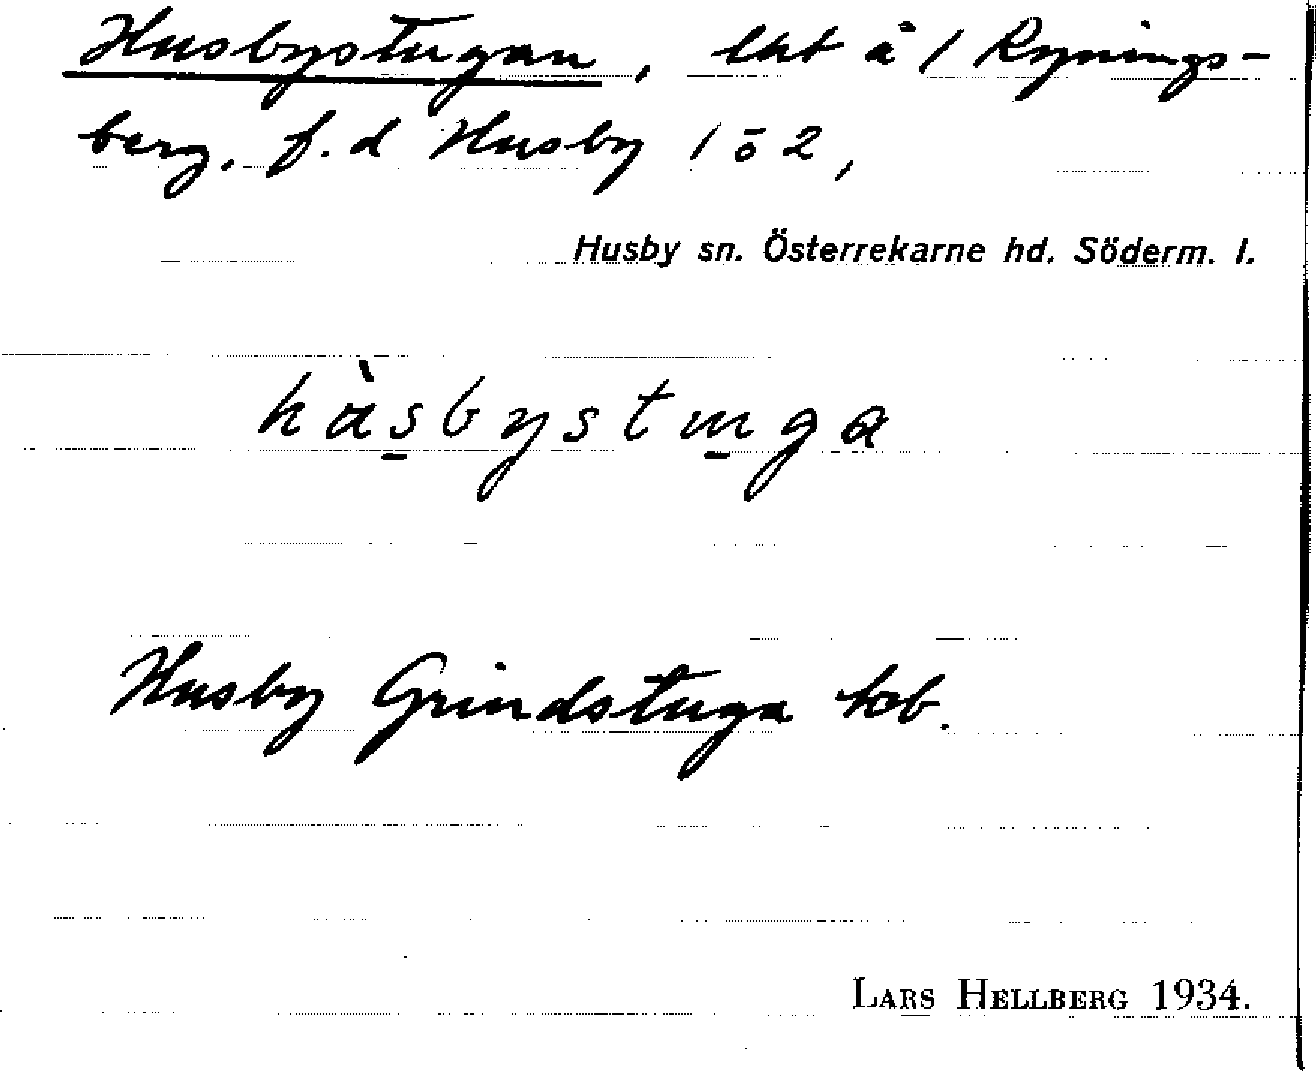 Husbystugan, lht å 1 Rynings-
berg, f.d Husby 1 o 2,
Husby sn. Österrekarne hd. Söderm. l.
hàsbystuga
Husby Grindstuga kb.
LARS HELLBERG 1934.